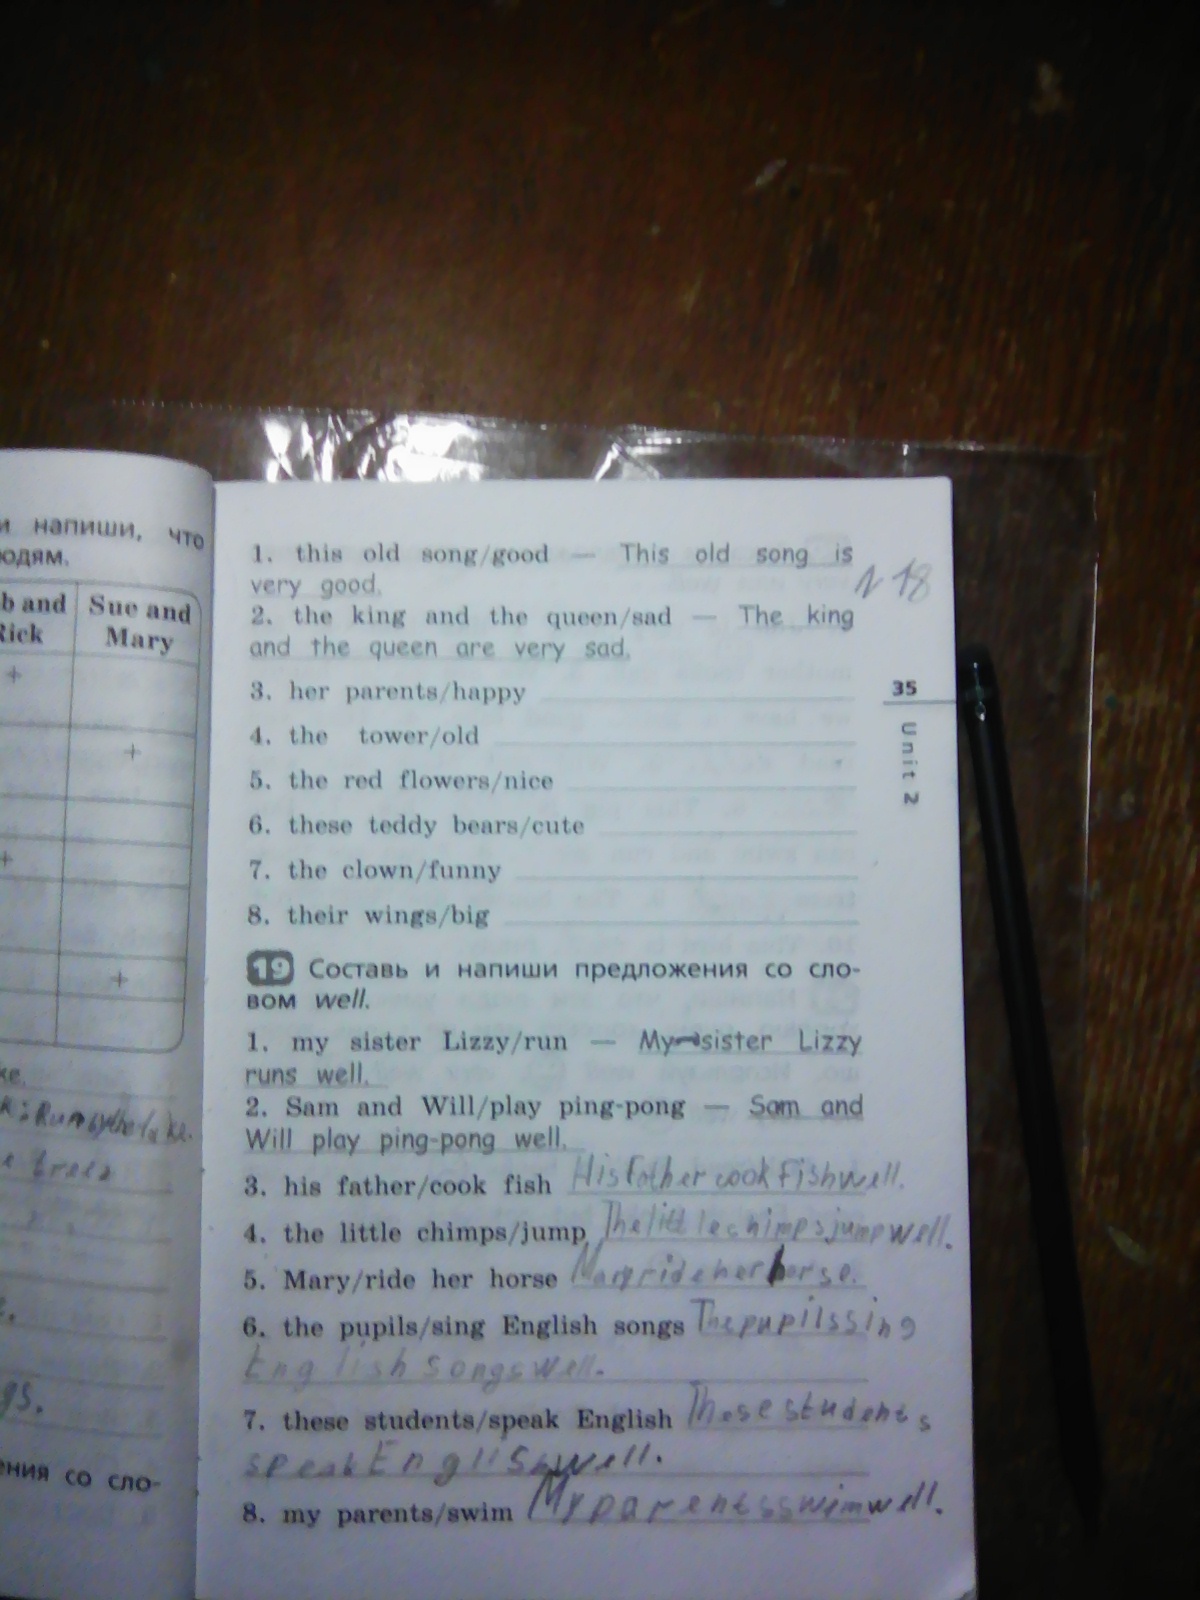 и напиши, что
юдям.
b and Sue and
Rick Mary
+
+
+
+
ke.
k: Run by the lake.
e trees
gs.
ения со сло-
1. this old song/good — This old song is
very good.
N 18
2. the king and the queen/sad — The king
and the queen are very sad.
3. her parents/happy
35
4. the tower/old
Unit 2
5. the red flowers/nice
6. these teddy bears/cute
7. the clown/funny
8. their wings/big
19 Составь и напиши предложения со сло-
вом well.
1. my sister Lizzy/run — My sister Lizzy
runs well.
2. Sam and Will/play ping-pong — Sam and
Will play ping-pong well.
3. his father/cook fish His father cook Fish well.
4. the little chimps/jump The little chimps jump well.
5. Mary/ride her horse Mary ride her horse.
6. the pupils/sing English songs The pupils sing
English songs well.
7. these students/speak English These students
speak English well.
8. my parents/swim My parents swim well.